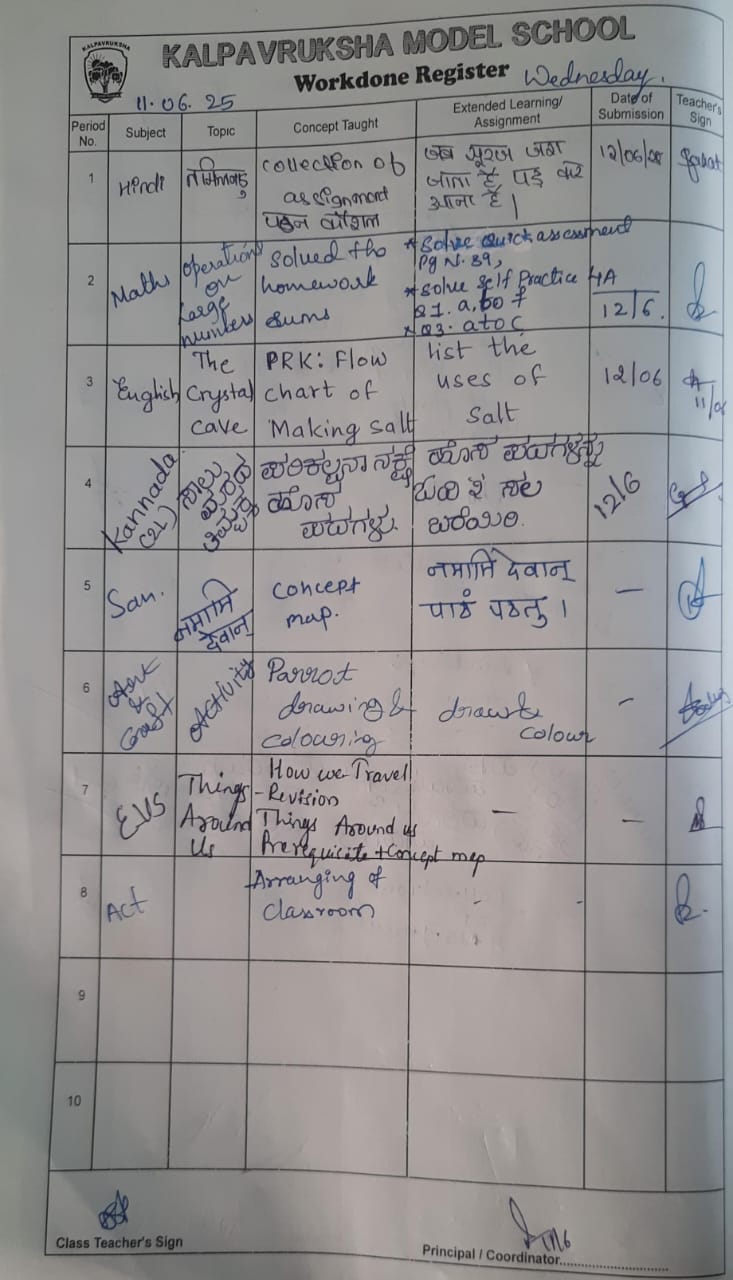 KALPAVRUKSHA
KALPAVRUKSHA MODEL SCHOOL
Workdone Register Wednesday.
11.06.25
Period No. Subject Topic Concept Taught Extended Learning/ Assignment Date of Submission Teacher's Sign
1 Hindi collection of assignment पठन कौशल जब सूरज जग जाता है पढ़ कर आना है। 12/06/25
2 Maths operation on Large numbers solved the homework sums
*Solve Quick assessment
Pg N. 39,
*Solve Self Practice 4A
Q1. a, b, f
*Q3. a to c
12/6.
3 English The Crystal cave PRK: Flow chart of Making salt list the uses of salt 12/06
11/06
4 Kannada (2L) ನಾಲು ಮರದ ತಿಮ್ಮಕ್ಕ ಪರಿಕಲ್ಪನಾ ನಕ್ಷೆ ಹೊಸ ಪದಗಳು. ಹೊಸ ಪದಗಳನ್ನು ಓದಿ ೨ ಸಲ ಬರೆಯಿರಿ. 12/6
5 San. नमामि देवान् Concept map. नमामि देवान् पाठं पठतु । –
6 Art & Craft Activity Parrot drawing & colouring draw & colour –
7 EVS Things Around Us
How we Travel
- Revision
Things Around us
Prerequisite + Concept map
– –
8 Act Arranging of classroom - -
9
10
Class Teacher's Sign
11/6
Principal / Coordinator